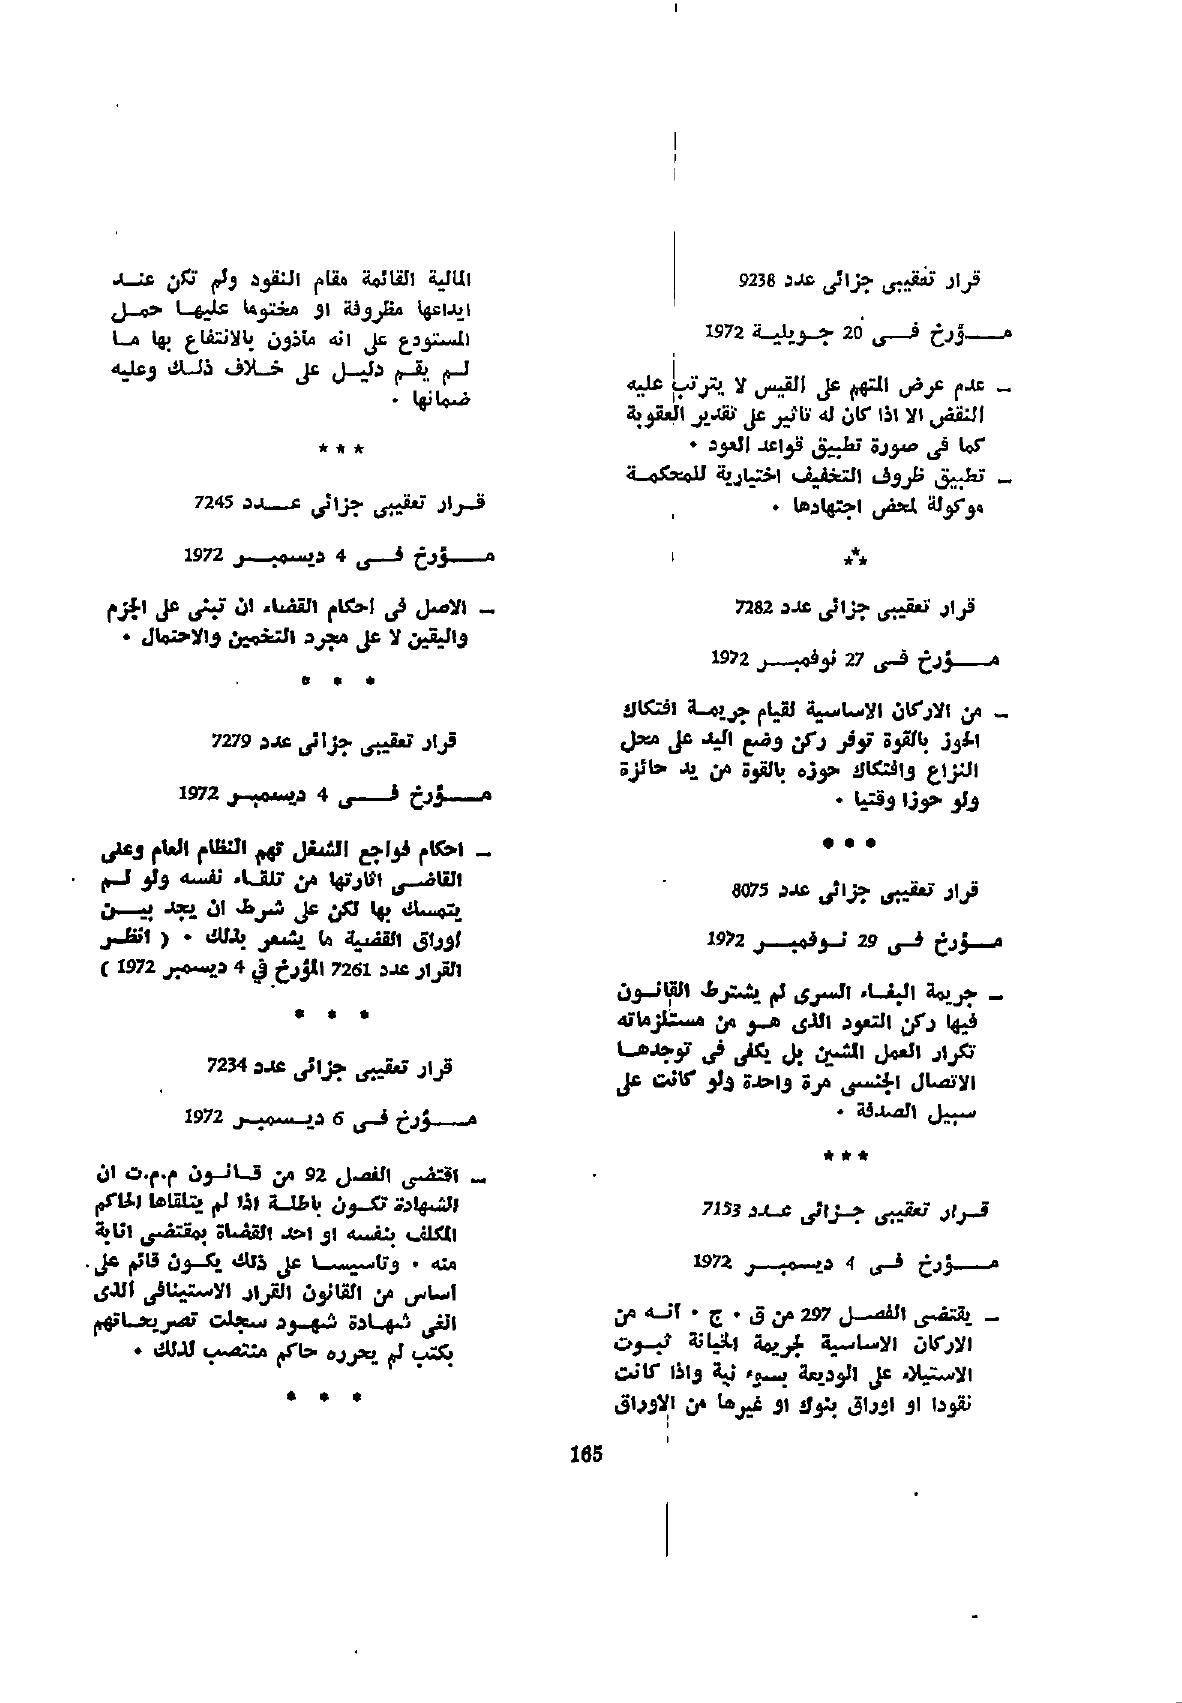 قرار تعقيبى جزائى عدد 9238
مـــؤرخ فـــى 20 جــويليــة 1972
ـ عدم عرض المتهم على القيس لا يترتب عليه
النقض الا اذا كان له تاثير على تقدير العقوبة
كما فى صورة تطبيق قواعد العود ٠
ـ تطبيق ظروف التخفيف اختيارية للمحكمــة
موكولة لمحض اجتهادها ٠
***
قرار تعقيبى جزائى عدد 7282
مـــؤرخ فـى 27 نوفمبـــر 1972
ـ من الاركان الاساسية لقيام جريمـة افتكاك
الحوز بالقوة توفر ركن وضع اليد على محل
النزاع وافتكاك حوزه بالقوة من يد حائزة
ولو حوزا وقتيا ٠
***
قرار تعقيبى جزائى عدد 8075
مـــؤرخ فــى 29 نـوفمبـــر 1972
ـ جريمة البغـاء السرى لم يشترط القانـون
فيها ركن التعود الذى هـو من مستلزماته
تكرار العمل المشين بل يكفى فى توجدهـا
الاتصال الجنسى مرة واحدة ولو كانت على
سبيل الصدفة ٠
***
قـرار تعقيبى جـزائى عـدد 7153
مـــؤرخ فـى 4 ديسمبـــر 1972
ـ يقتضى الفصـل 297 من ق ٠ ج ٠ انـه من
الاركان الاساسية لجريمة الخيانة ثبـوت
الاستيلاء على الوديعة بسوء نية واذا كانت
نقودا او اوراق بنوك او غيرها من الاوراق
المالية القائمة مقام النقود ولم تكن عنـد
ايداعها مظروفة او مختوما عليهـا حمـل
المستودع على انه مأذون بالانتفاع بها مـا
لـم يقـم دليـل على خـلاف ذلـك وعليه
ضمانها ٠
***
قـرار تعقيبى جزائى عــدد 7245
مـــؤرخ فـــى 4 ديسمبـــر 1972
ـ الاصل فى احكام القضاء ان تبنى على الجزم
واليقين لا على مجرد التخمين والاحتمال ٠
* * *
قرار تعقيبى جزائى عدد 7279
مـــؤرخ فـــى 4 ديسمبـــر 1972
ـ احكام فواجع الشغل تهم النظام العام وعلى
القاضـى اثارتها من تلقـاء نفسه ولو لـم
يتمسك بها لكن على شرط ان يجد بيــن
أوراق القضية ما يشعر بذلك ٠ ( انظـر
القرار عدد 7261 المؤرخ في 4 ديسمبر 1972 )
* * *
قرار تعقيبى جزائى عدد 7234
مـــؤرخ فـى 6 ديـسمبـــر 1972
ـ اقتضى الفصل 92 من قـانـون م.م.ت ان
الشهادة تكـون باطلـة اذا لم يتلقاها الحاكم
المكلف بنفسه او احد القضاة بمقتضى انابة
منه ٠ وتأسيسـا على ذلك يكـون قائم على
أساس من القانون القرار الاستينافى الذى
الغى شهـادة شهـود سجلت تصريحـاتهم
بكتب لم يحرره حاكم منتصب لذلك ٠
* * *
165